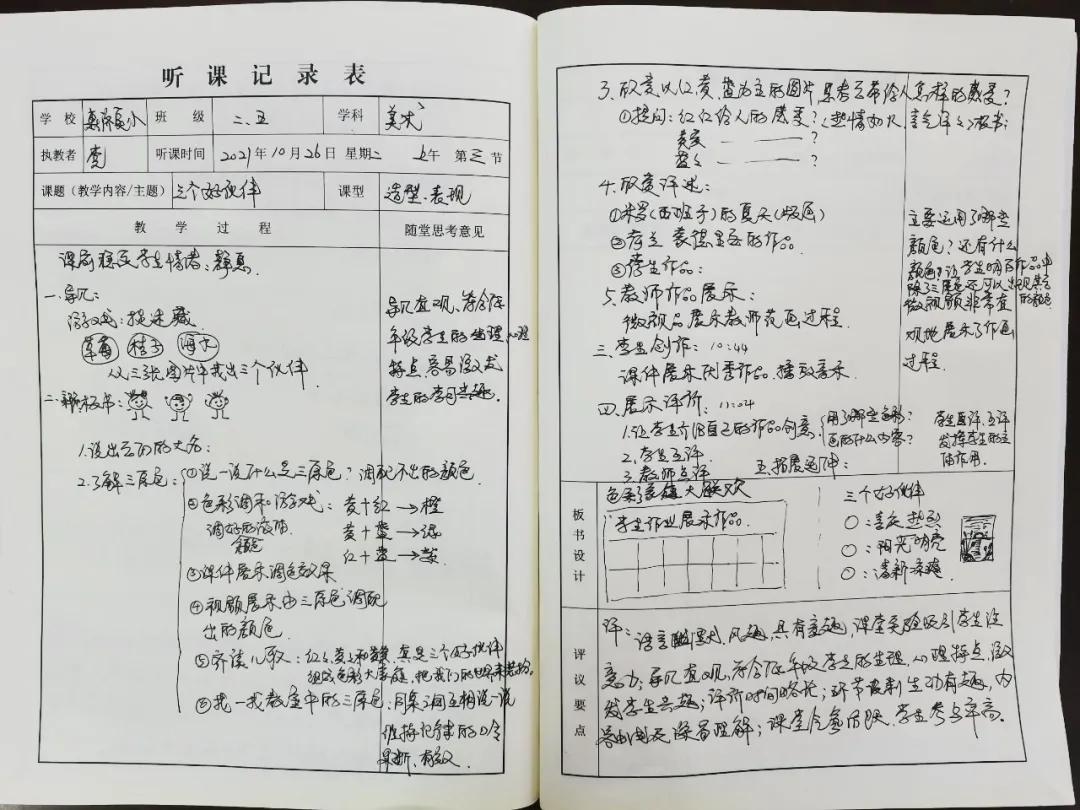 听课记录表
学校 班级 二.五 学科 美术
执教者 李 听课时间 2021年10月26日 星期二 上午 第三节
课题（教学内容/主题） 三个好伙伴 课型 造型.表现
教学过程 随堂思考意见
课前稳定学生情绪：
一.导入：
游戏：捉迷藏
草莓 桔子 海水
从三张图片中找出三个伙伴.
导入直观、符合低
年级学生的生理、心理
特点,容易激发
学生的学习兴趣.
二.板书：
1.说出它们的大名：
2.了解三原色：
①说一说什么是三原色？调配不出的颜色.
②色彩调和游戏：黄+红→橙
调好的液体 黄+蓝→绿
颜色 红+蓝→紫
③课件展示调色效果
④视频展示由三原色调配
出的颜色.
⑤齐读儿歌：红、黄和蓝,真是三个好伙伴
组成色彩大家庭,把我们的世界来装扮.
⑥找一找教室中的三原色：同桌之间互相说一说
维持纪律的口令
果断、有效.
3.欣赏以红、黄、蓝为主的图片,思考它带给人怎样的感受？
①提问：红红给人的感受？(热情如火 喜气洋洋)板书：
黄黄 ？
蓝蓝 ？
4.欣赏评述：
①米罗(西班牙)的夏天(版画)
②荷兰 蒙德里安的作品.
③学生作品：
主要运用了哪些
颜色？还有什么
颜色？让学生明白作品中
除了三原色还可以出现其它
的颜色
5.教师作品展示：
微视频展示教师范画过程.
微视频非常直
观地展示了作画
过程.
三.学生创作：10:44
课件展示优秀作品.播放音乐.
四.展示评价：11:04
1.让学生介绍自己的作品创意 用了哪些色彩？
画的什么内容？
2.学生互评
3.教师点评
学生自评、互评
发挥学生的主
体作用.
五.拓展延伸：
板书设计
色彩家族大联欢
学生作业展示作品.
三个好伙伴
○：喜庆 热烈
○：阳光 明亮
○：清新 凉爽
评议要点
评：语言幽默、风趣,具有童趣,课堂实验吸引学生注
意力；导入直观,符合低年级学生的生理、心理特点,激
发学生兴趣；评价时间略长；环节设制生动有趣,内
容由浅及深易理解；学生参与率高.